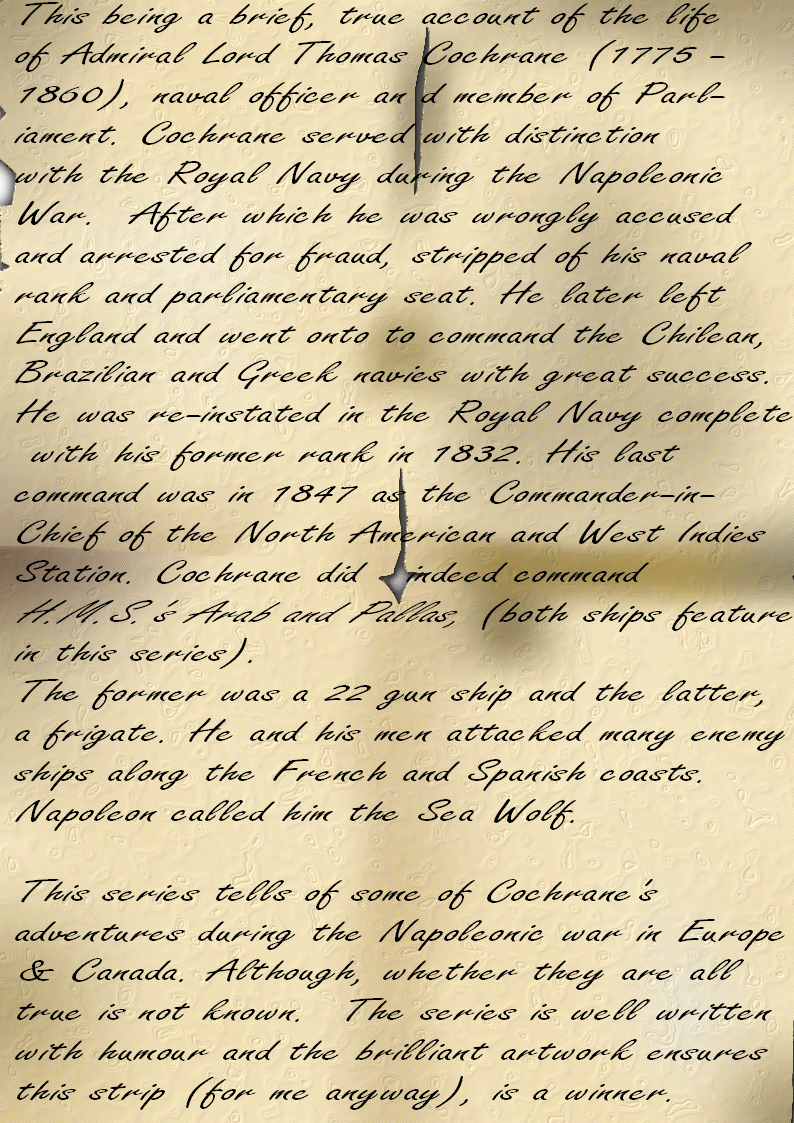 This being a brief, true account of the life
of Admiral Lord Thomas Cochrane (1775 -
1860), naval officer and member of Parl-
iament. Cochrane served with distinction
with the Royal Navy during the Napoleonic
War. After which he was wrongly accused
and arrested for fraud, stripped of his naval
rank and parliamentary seat. He later left
England and went onto to command the Chilean,
Brazilian and Greek navies with great success.
He was re-instated in the Royal Navy complete
with his former rank in 1832. His last
command was in 1847 as the Commander-in-
Chief of the North American and West Indies
Station. Cochrane did indeed command
H.M.S.'s Arab and Pallas, (both ships feature
in this series).
The former was a 22 gun ship and the latter,
a frigate. He and his men attacked many enemy
ships along the French and Spanish coasts.
Napoleon called him the Sea Wolf.
This series tells of some of Cochrane's
adventures during the Napoleonic war in Europe
& Canada. Although, whether they are all
true is not known. The series is well written
with humour and the brilliant artwork ensures
this strip (for me anyway), is a winner.